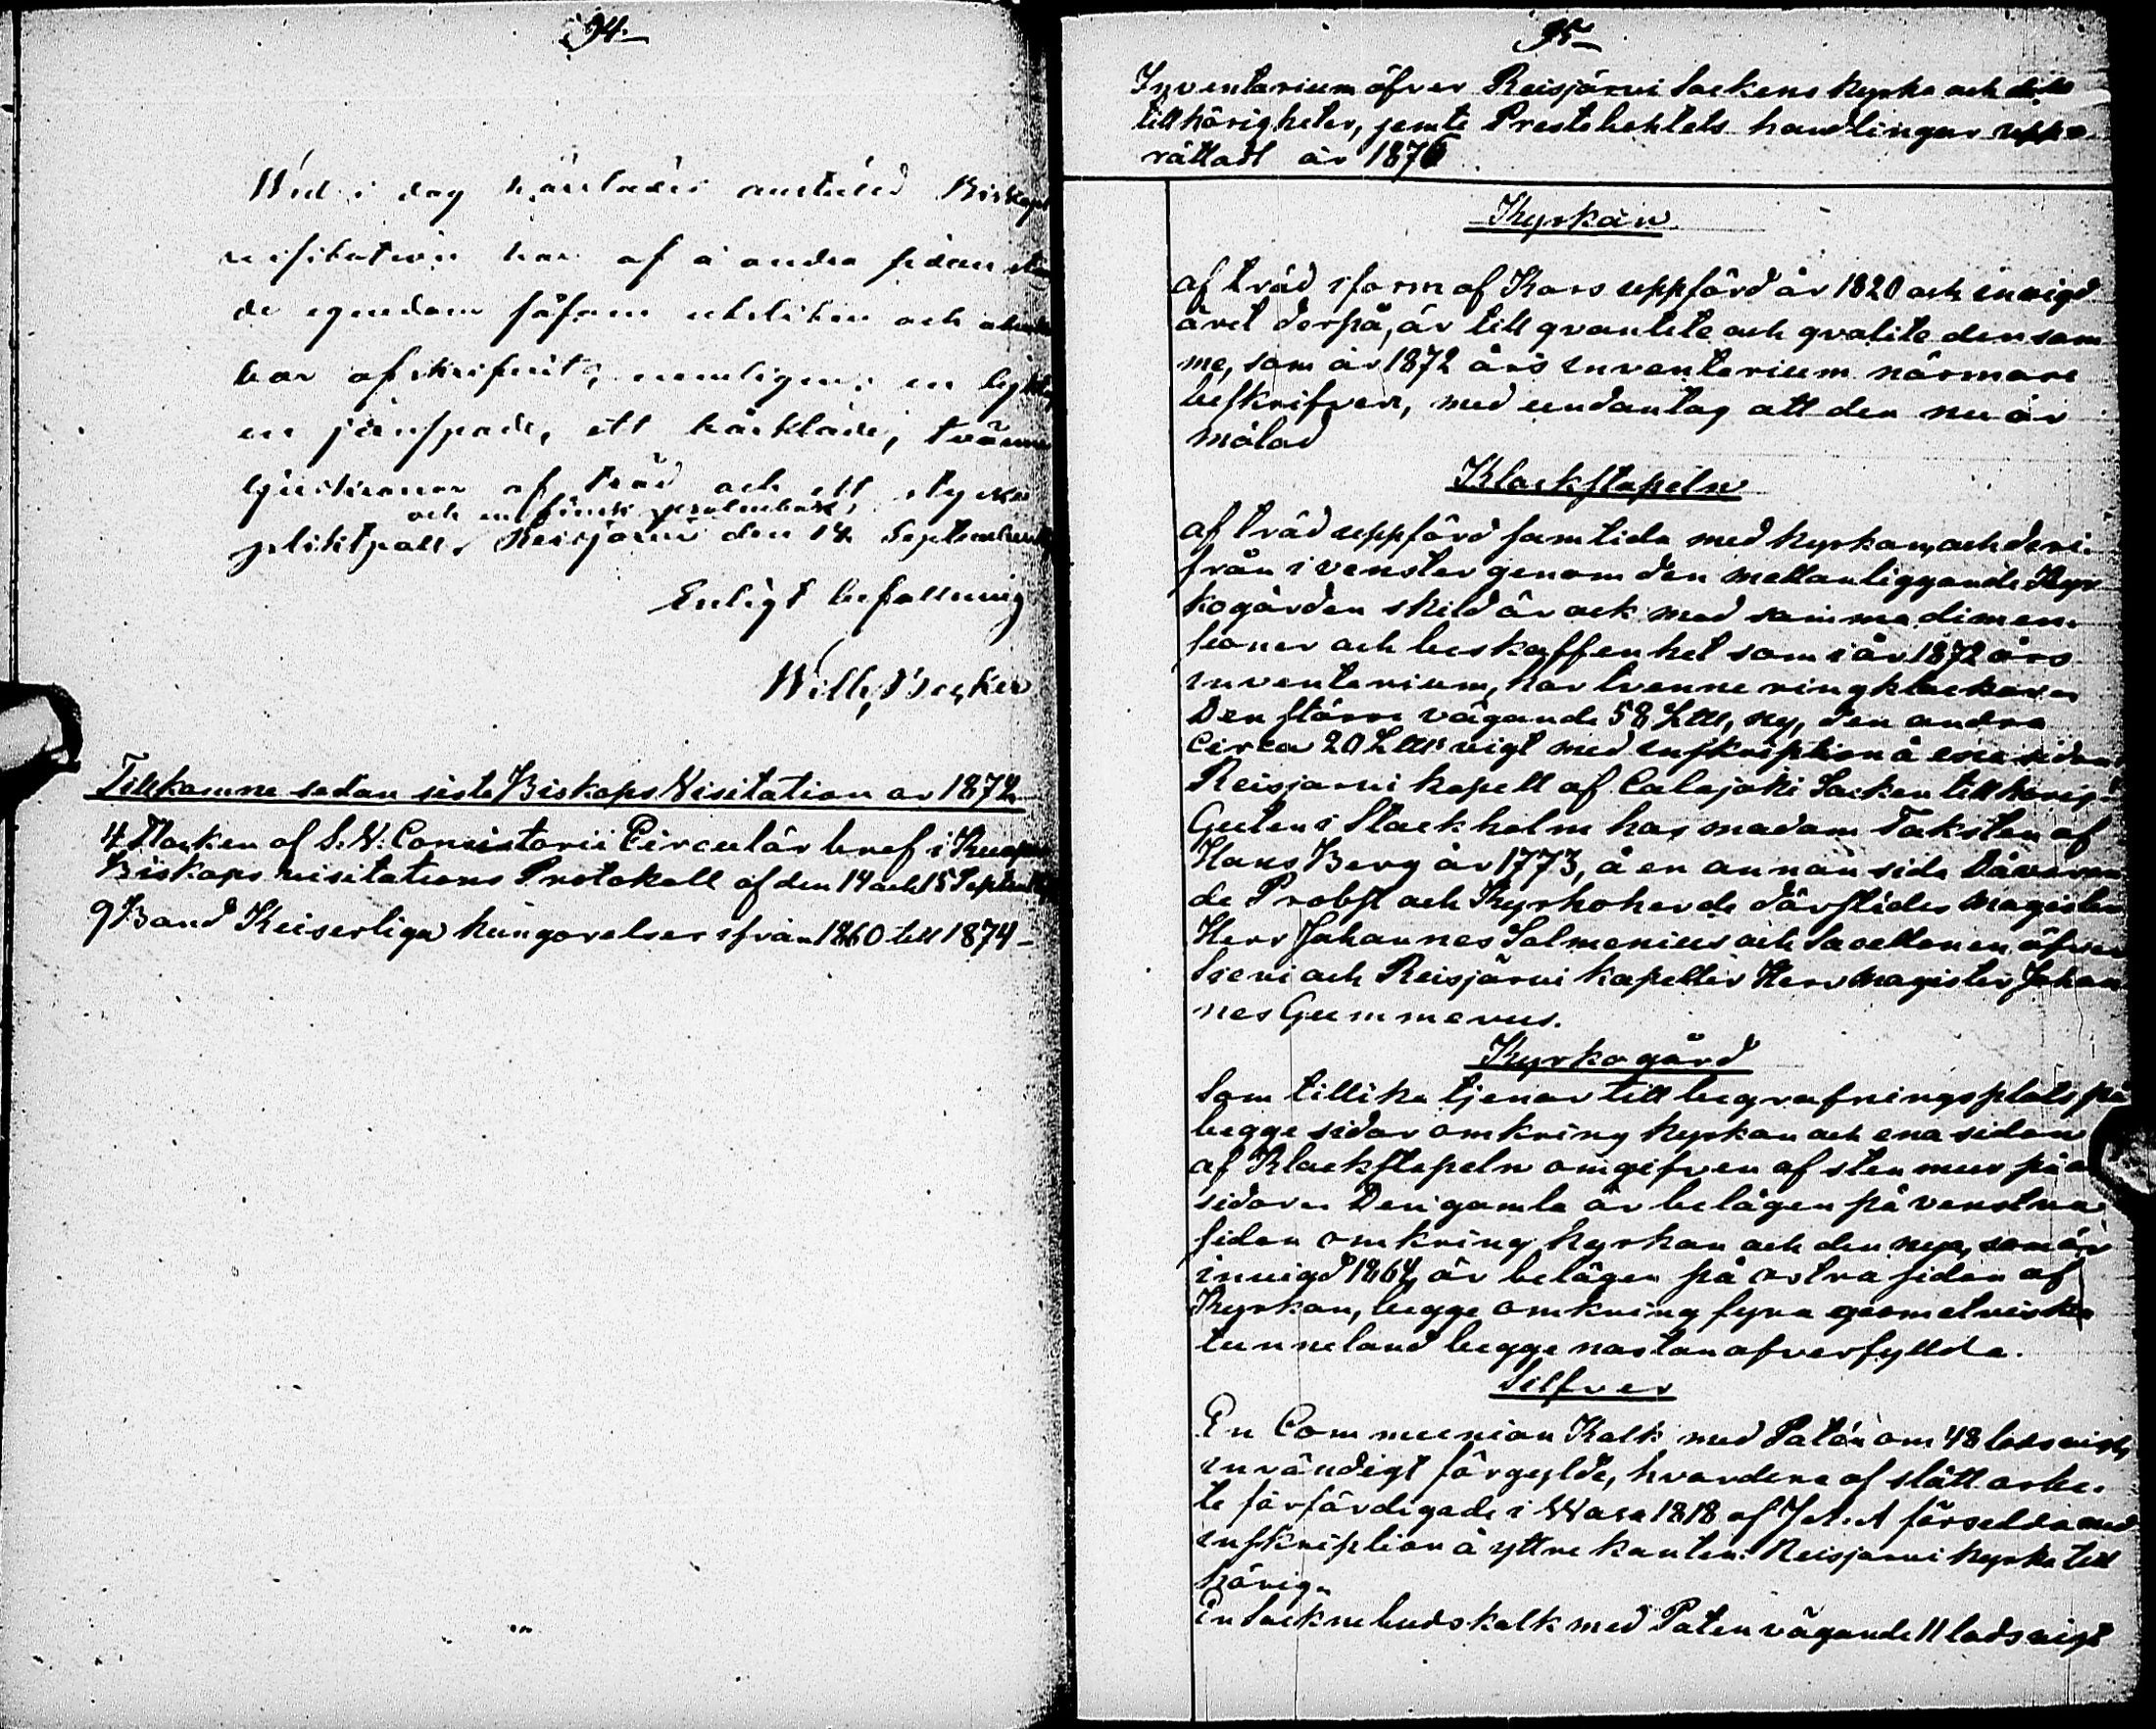 94.
Wid i dag härstädes anstäld Biskops
visitation har af å andra sidan
de egendom såsom obrukbar och
bar afskrifvits, nemligen: en lykta,
en jernspade, ett bårkläde, tvänne
ljuskronor af träd och ett stycke
och en finsk psalmbok,
pliktpall. Reisjärvi den 14 September
Enligt befallning
Willh, Becker
Tillkomne sedan sista Biskops Visitation år 1874
4 Stycken af S. V. Consistorii Circulär bref i
Biskops visitations Protokoll af den 14 och 15 September
9 Band Keiserliga kungörelser ifrån 1860 till 1874 –
95
Inventarium öfver Reisjärvi Sockens kyrka och dess
tillhörigheter, jemte Prestelektets handlingar upp-
rättadt år 1876
Kyrkan
af träd i form af Kors uppförd år 1820 och invigd
året derpå, är till qvantite och qvalite densam
me, som är 1872 års inventarium närmare
beskrifven, med undantag att den nu är
målad
Klockstapeln
af träd uppförd samtida med kyrkan, och deri-
från i venster genom den mellanliggande Kyr
kogården skild är ock med samma dimen-
sioner och beskaffenhet som i år 1872 års
inventarium, har tvenne ringklockor.
Den större vägande 58 L℔, ny, den andra
circa 20 L℔ vigt med inskription å ena sidan
Reisjarvi kapell af Calajoki Socken tillhörig
Guten i Stockholm hos madam Taksten af
Hans Berg år 1773, å en annan sida Dåvaran
de Probst och Kyrkoherde därstädes Magister
Herr Johannes Salmenius och Sacellanen öfver
Sievi och Reisjärvi kapeller Herr Magister Johan
nes Gummerus.
Kyrkogård
Som tillika tjenar till begrafningsplats på
begge sidor omkring kyrkan och ena sidan
af Klockstapeln omgifven af sten mur på
sidorn. Den gamla är belägen på venstra
sidan omkring kyrkan och den nya, som är
invigd 1864 är belägen på östra sidan af
Kyrkan, begge omkring fyra geometriska
tunneland begge nästan öfverfyllda.
Silfver
En Communion Kalk med Patén om 48 lods vigt,
invändigt förgylde, hvardera af slätt arbe-
te förfärdigade i Wasa 1818 af J A. A försedda med
inskription å yttre kanten: Reisjarvi kyrka till
hörig.
En Sockne budskalk med Paten vägande 11 lods vigt